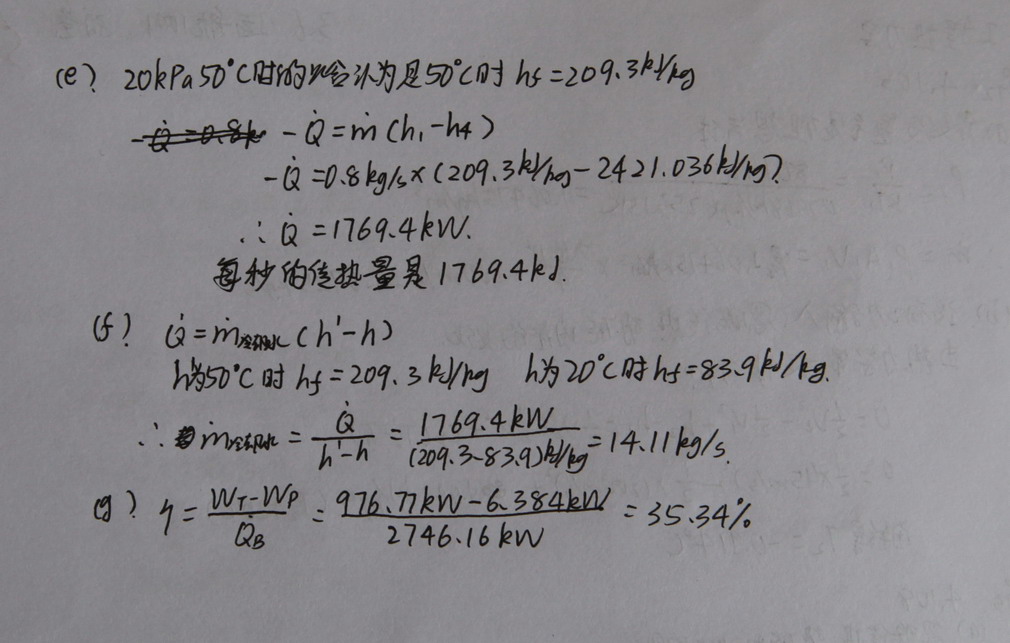 (e) 20kPa 50℃时的焓认为是50℃时 hf=209.3kJ/kg
-Q̇=0.8k -Q̇=ṁ(h₁-h₄)
-Q̇=0.8kg/s×(209.3kJ/kg-2421.036kJ/kg)
∴ Q̇=1769.4kW.
每秒的传热量是1769.4kJ.
(f) Q̇=ṁ冷却水(h'-h)
h'为50℃时 hf=209.3kJ/kg h为20℃时 hf=83.9kJ/kg.
∴ ṁ冷却水=Q̇/(h'-h)=1769.4kW/(209.3-83.9)kJ/kg=14.11kg/s.
(g) η=(W_T-W_P)/Q̇_B=(976.77kW-6.384kW)/2746.16kW=35.34%